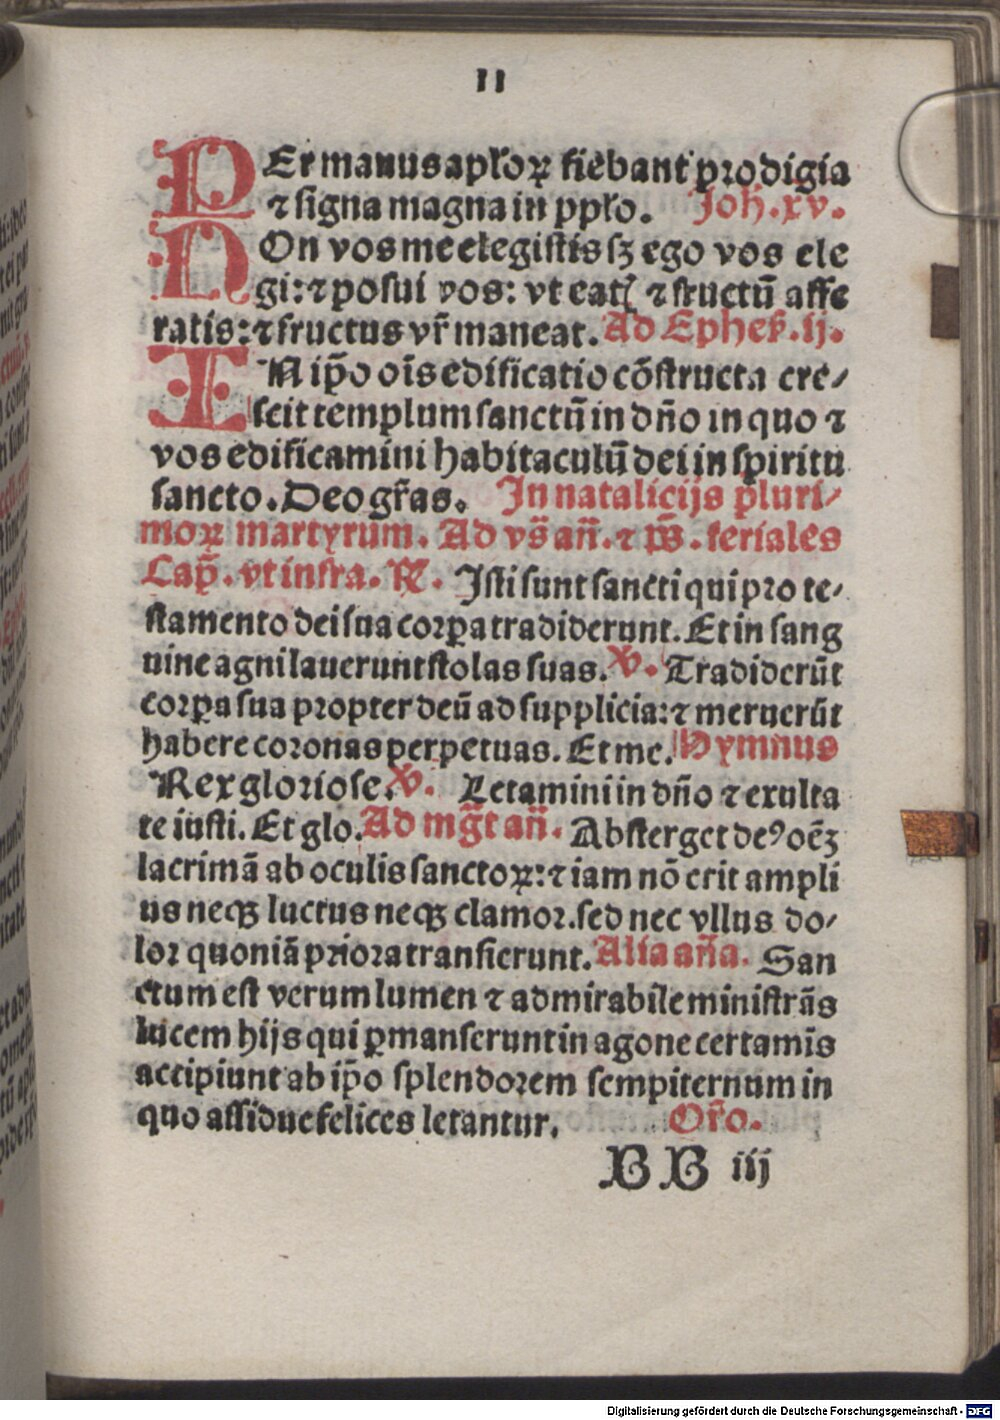 11
PEr manus apl'oꝝ fiebant prodigia
⁊ signa magna in pplo. Joh.xv.
NOn vos me elegistis sꝫ ego vos ele
gi: ⁊ posui vos: vt eat̉ ⁊ fructū affe
ratis: ⁊ fructus vr̄ maneat. Ad Ephes̄.ij.
IN ip̄o oīs edificatio cōstructa cre⸗
scit templum sanctū in dn̄o in quo ⁊
vos edificamini habitaculū dei in spiritu
sancto. Deo gr̄as. In natalicijs pluri⸗
moꝝ martyrum. Ad vs̄ an̄. ⁊ ps̄. feriales
Cap̄. vt infra. ℟. Isti sunt sancti qui pro te⸗
stamento dei sua corpa tradiderunt. Et in sang
uine agni lauerunt stolas suas. ℣. Tradiderūt
corpa sua propter deū ad supplicia: ⁊ meruerūt
habere coronas perpetuas. Et me. Hymnus
Rex gloriose. ℣. Letamini in dn̄o ⁊ exulta
te iusti. Et glo. Ad mg̅t an̄. Absterget deꝰ oēꝫ
lacrimā ab oculis sanctoꝝ: ⁊ iam nō erit ampli
us neqꝫ luctus neqꝫ clamor. sed nec vllus do⸗
lor quoniā priora transierunt. Alia an̄a. San
ctum est verum lumen ⁊ admirabile ministrās
lucem hijs qui ꝑmanserunt in agone certamīs
accipiunt ab ip̄o splendorem sempiternum in
quo assidue felices letantur. Or̄o.
BB iij
Digitalisierung gefördert durch die Deutsche Forschungsgemeinschaft - DFG